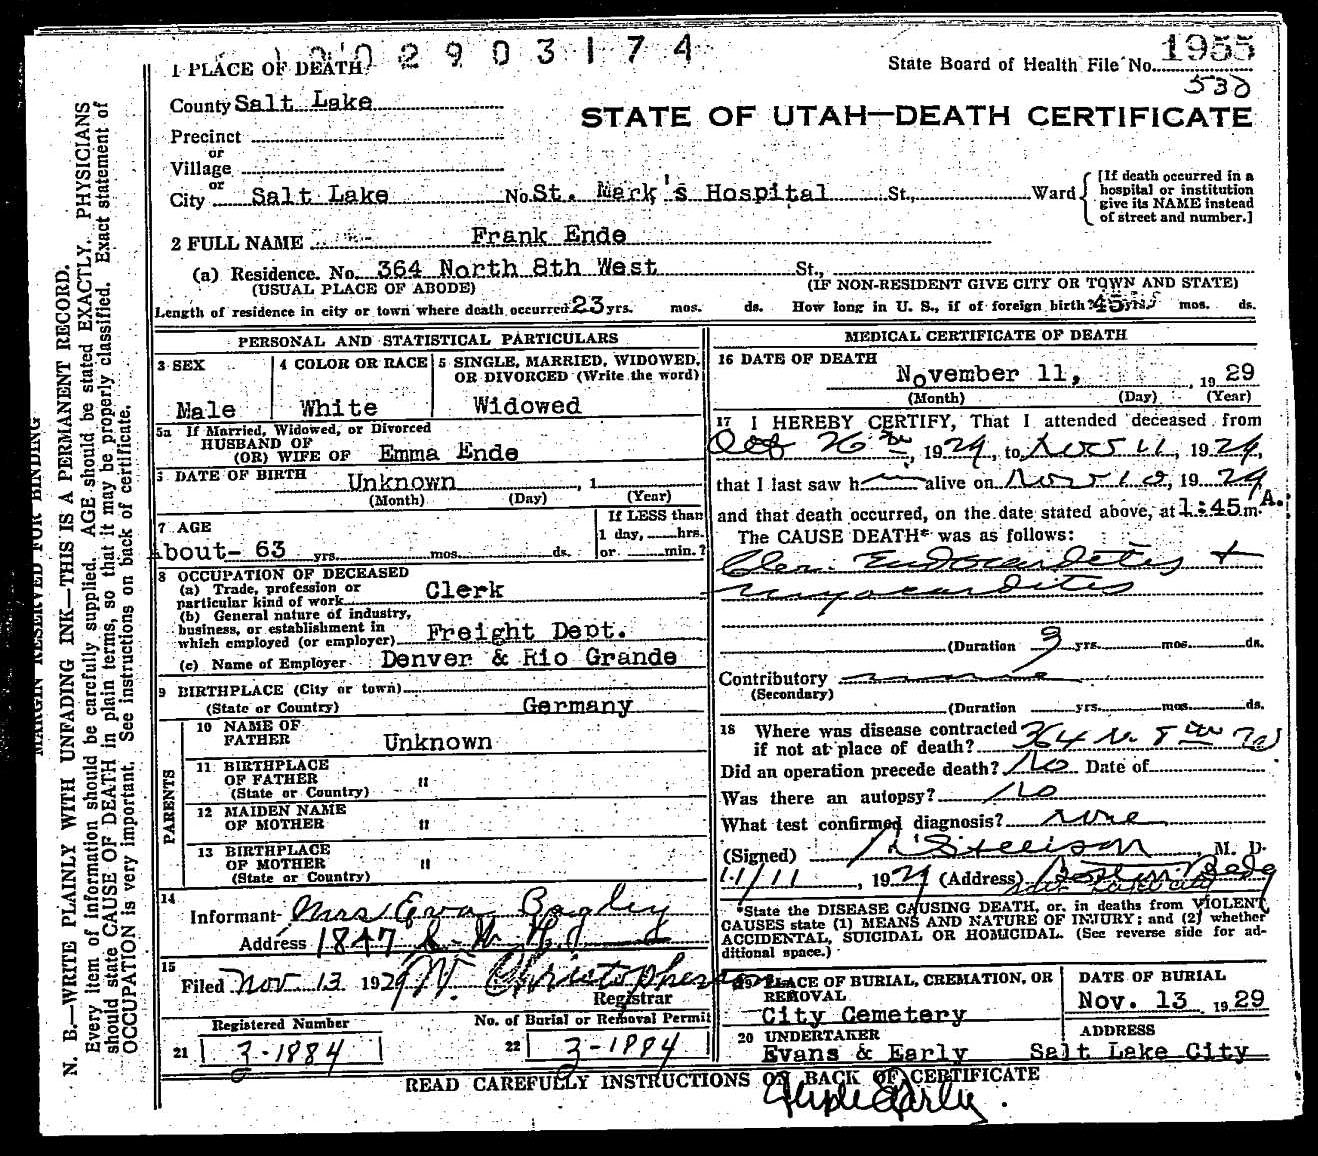 2903174
1 PLACE OF DEATH
State Board of Health File No. 1955
530
County Salt Lake
STATE OF UTAH—DEATH CERTIFICATE
Precinct
or
Village
or
City Salt Lake No. St. Mark's Hospital St., Ward
[If death occurred in a hospital or institution give its NAME instead of street and number.]
2 FULL NAME Frank Ende
(a) Residence. No. 364 North 8th West St.,
(USUAL PLACE OF ABODE) (IF NON-RESIDENT GIVE CITY OR TOWN AND STATE)
Length of residence in city or town where death occurred 23 yrs. mos. ds. How long in U. S., if of foreign birth? 45 yrs. mos. ds.
PERSONAL AND STATISTICAL PARTICULARS
3 SEX 4 COLOR OR RACE 5 SINGLE, MARRIED, WIDOWED, OR DIVORCED (Write the word)
Male White Widowed
5a If Married, Widowed, or Divorced
HUSBAND OF
(OR) WIFE OF Emma Ende
6 DATE OF BIRTH Unknown , 1
(Month) (Day) (Year)
7 AGE
About- 63 yrs. mos. ds.
If LESS than
1 day, hrs.
or min.?
8 OCCUPATION OF DECEASED
(a) Trade, profession or
particular kind of work Clerk
(b) General nature of industry,
business, or establishment in
which employed (or employer) Freight Dept.
(c) Name of Employer Denver & Rio Grande
9 BIRTHPLACE (City or town)
(State or Country) Germany
PARENTS
10 NAME OF
FATHER Unknown
11 BIRTHPLACE
OF FATHER "
(State or Country)
12 MAIDEN NAME
OF MOTHER "
13 BIRTHPLACE
OF MOTHER "
(State or Country)
14
Informant Mrs Eva Bagley
Address 1847
15
Filed Nov 13 1929 W. Christopherson
Registrar
Registered Number No. of Burial or Removal Permit
21 3-1884 22 3-1884
MEDICAL CERTIFICATE OF DEATH
16 DATE OF DEATH
November 11, , 1929
(Month) (Day) (Year)
17 I HEREBY CERTIFY, That I attended deceased from
Oct 26th, 1929, to Nov 11, 1929,
that I last saw him alive on Nov 10, 1929
and that death occurred, on the date stated above, at 1:45 A. m.
The CAUSE DEATH* was as follows:
Chr. Endocarditis +
myocarditis
(Duration 9 yrs. mos. ds.
Contributory
(Secondary)
(Duration yrs. mos. ds.
18 Where was disease contracted
if not at place of death? 364 N. 8th W
Did an operation precede death? No Date of
Was there an autopsy? No
What test confirmed diagnosis? none
(Signed) M. D.
11/11, 1929 (Address) Boston Bldg
Salt Lake City
*State the DISEASE CAUSING DEATH, or, in deaths from VIOLENT
CAUSES state (1) MEANS AND NATURE OF INJURY; and (2) whether
ACCIDENTAL, SUICIDAL OR HOMICIDAL. (See reverse side for ad-
ditional space.)
19 PLACE OF BURIAL, CREMATION, OR
REMOVAL
City Cemetery
DATE OF BURIAL
Nov. 13 1929
20 UNDERTAKER
Evans & Early
ADDRESS
Salt Lake City
READ CAREFULLY INSTRUCTIONS ON BACK OF CERTIFICATE
MARGIN RESERVED FOR BINDING
N. B.—WRITE PLAINLY WITH UNFADING INK—THIS IS A PERMANENT RECORD.
Every item of information should be carefully supplied. AGE should be stated EXACTLY. PHYSICIANS
should state CAUSE OF DEATH in plain terms, so that it may be properly classified. Exact statement of
OCCUPATION is very important. See instructions on back of certificate.